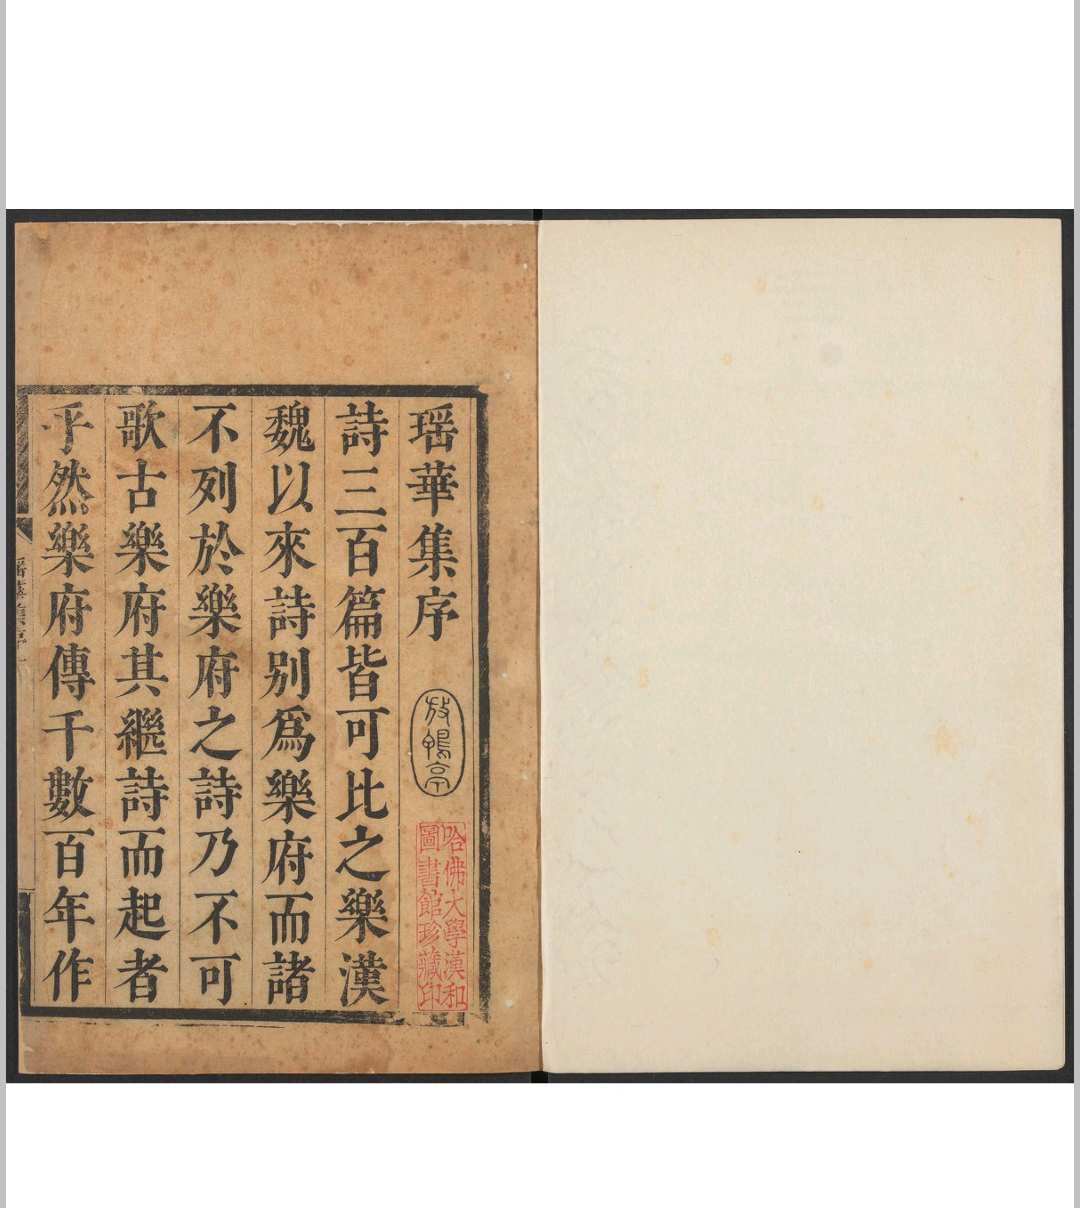 瑶華集序
放鴨亭
哈佛大學漢和
圖書館珍藏印
詩三百篇皆可比之樂漢
魏以來詩别爲樂府而諸
不列於樂府之詩乃不可
歌古樂府其繼詩而起者
乎然樂府傳千數百年作
瑶華集序